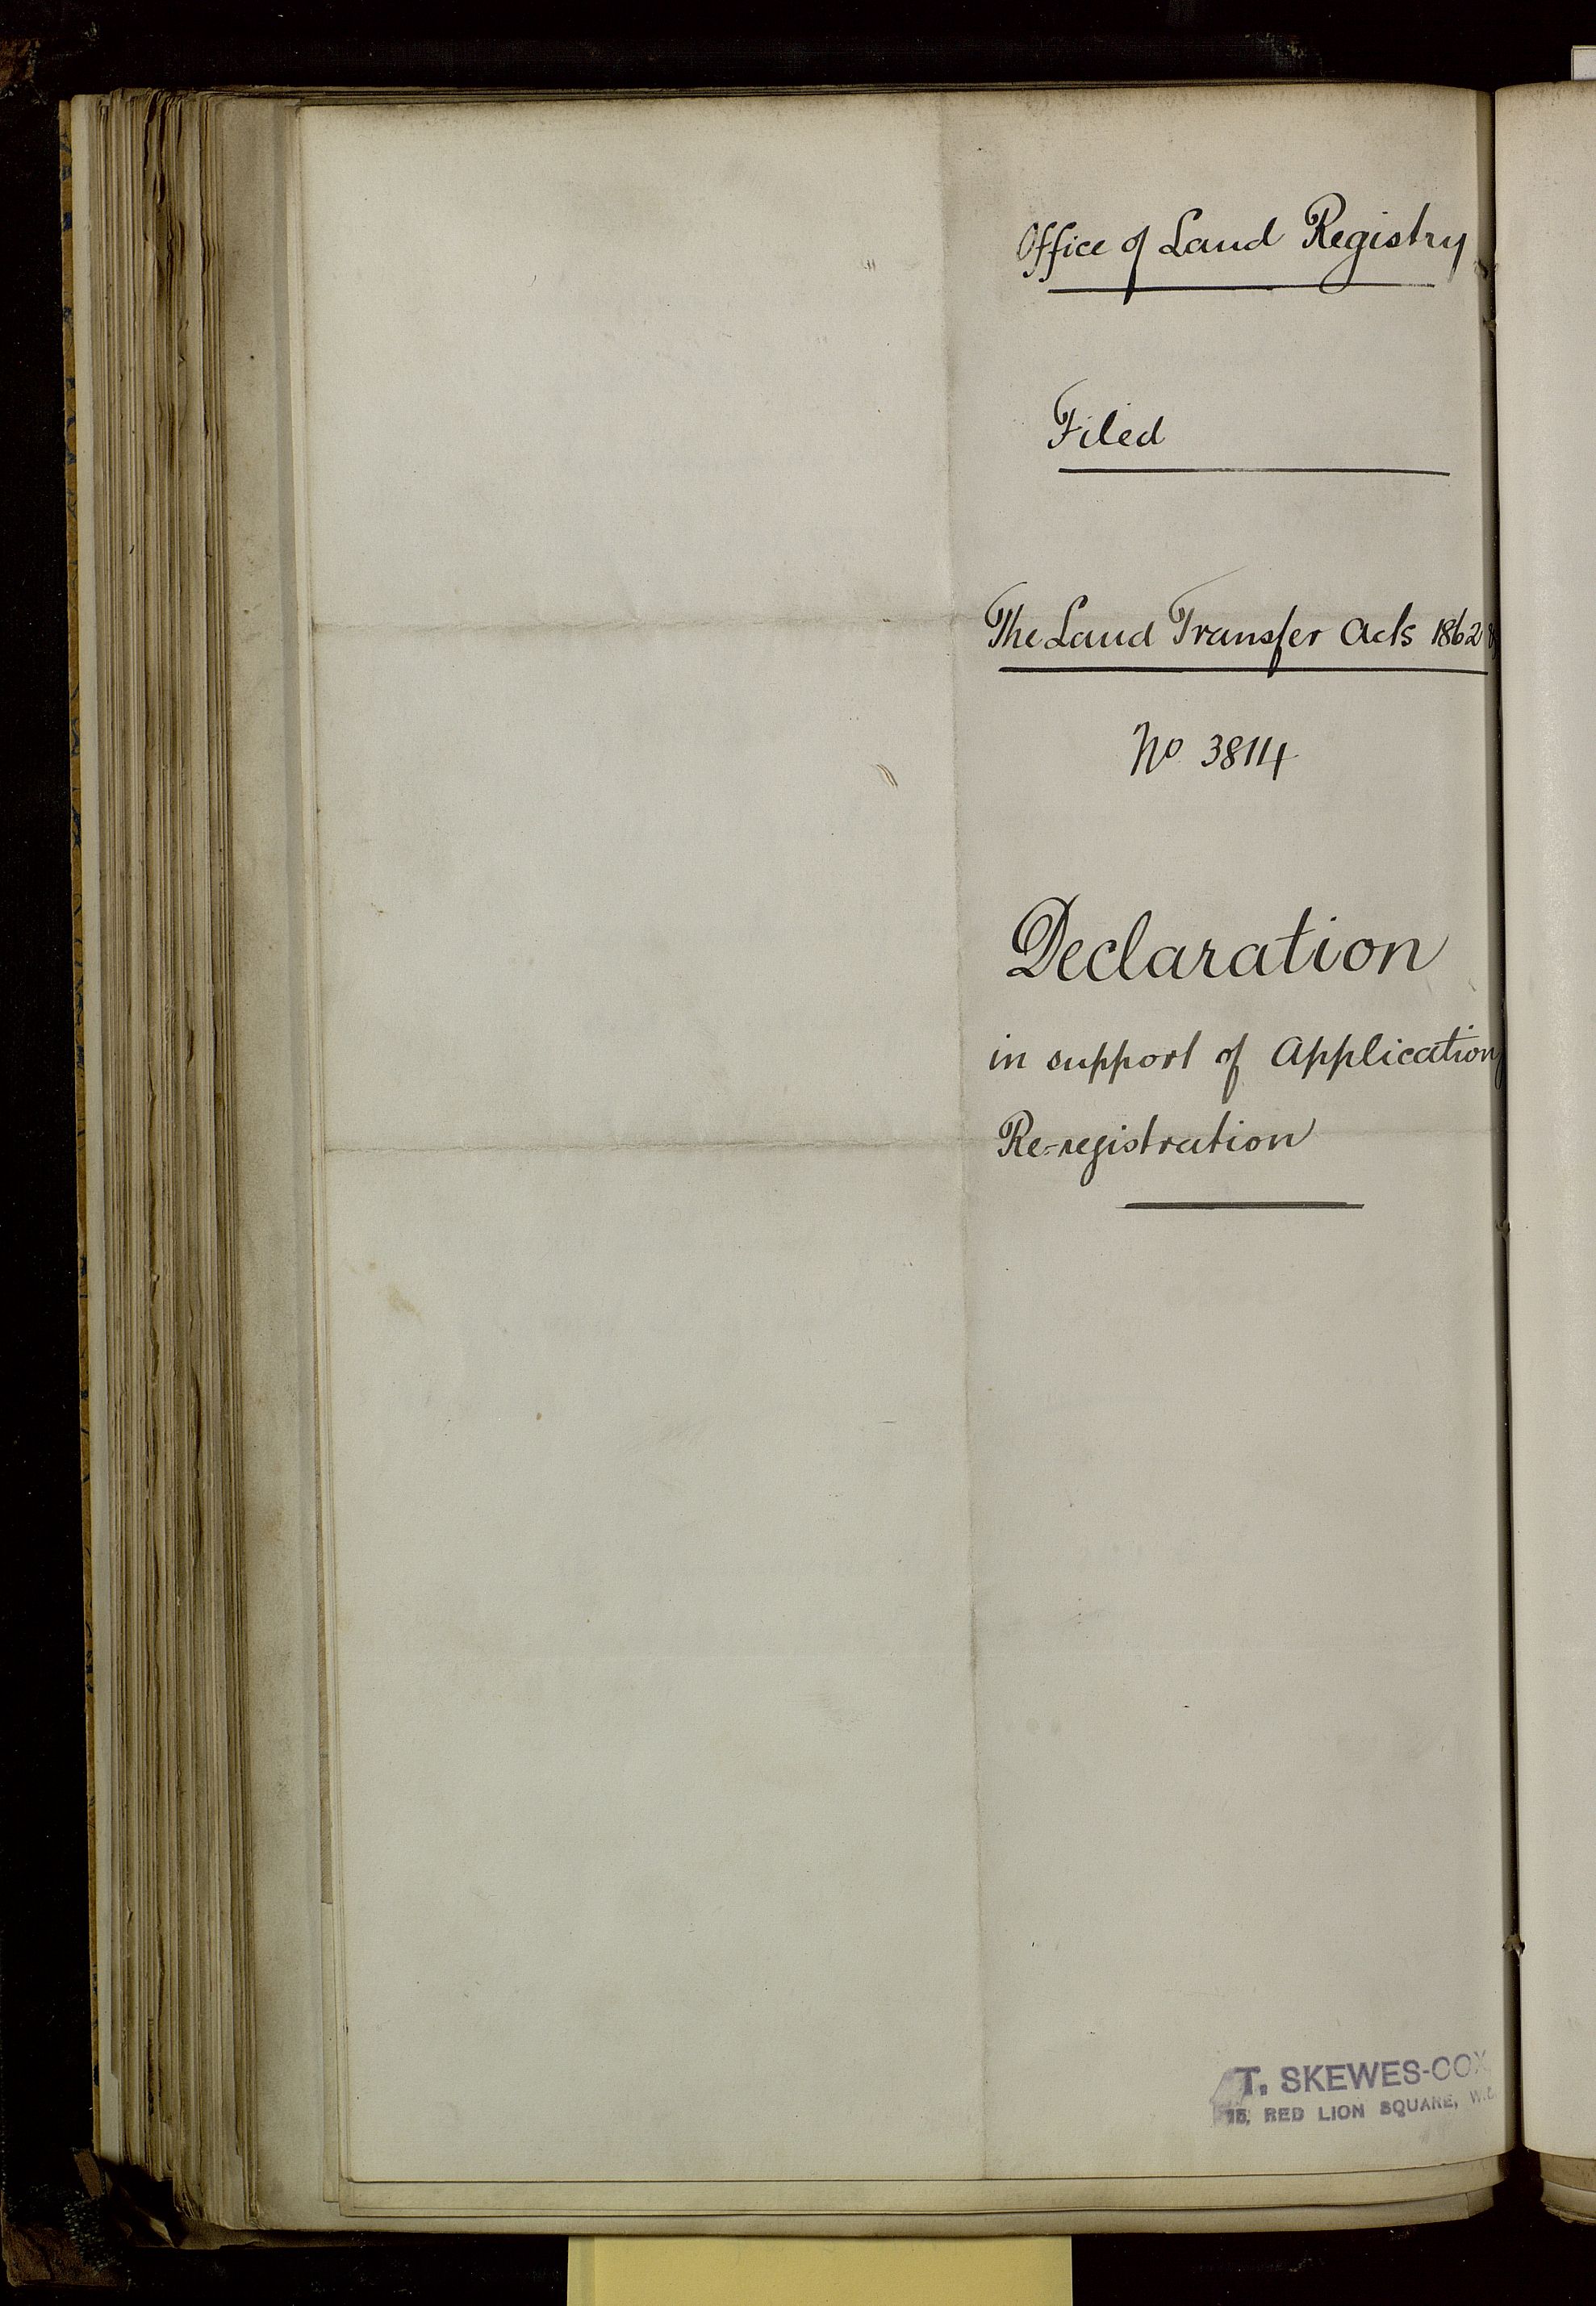 Office of Land Registry
Filed
The Land Transfer Acts 1862
No 3814
Declaration
in support of Application
Re-registration
T. SKEWES-COX
15, RED LION SQUARE, W.C.